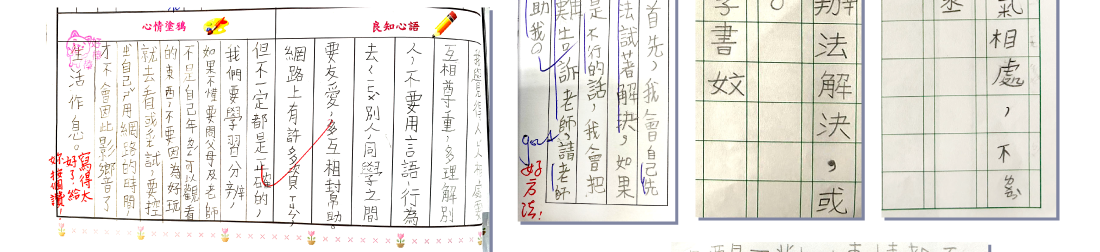 良知心語
心情塗鴉
互相尊重,多理解別
人,不要用言語、行為
去欺负別人,同學之間
要友愛,多互相封幫助。
網路上有許多資訊,
但不一定都是正確的,
我們要學習分辨,
如果不懂要問父母及老師
不是自己年 可以觀看
的東西,不要因為好玩
就去看或 試,要控
自己 用網路的時間,
才不會因此影響了
生活作息。
寫得太
好了,給
妳按個讚!
首先,我會自己先
法試著解決,如果
是不行的話,我會把
難告訴老師,請老師
助我。
good
好方法!
辦法解決,或
。
書
氣相處,不